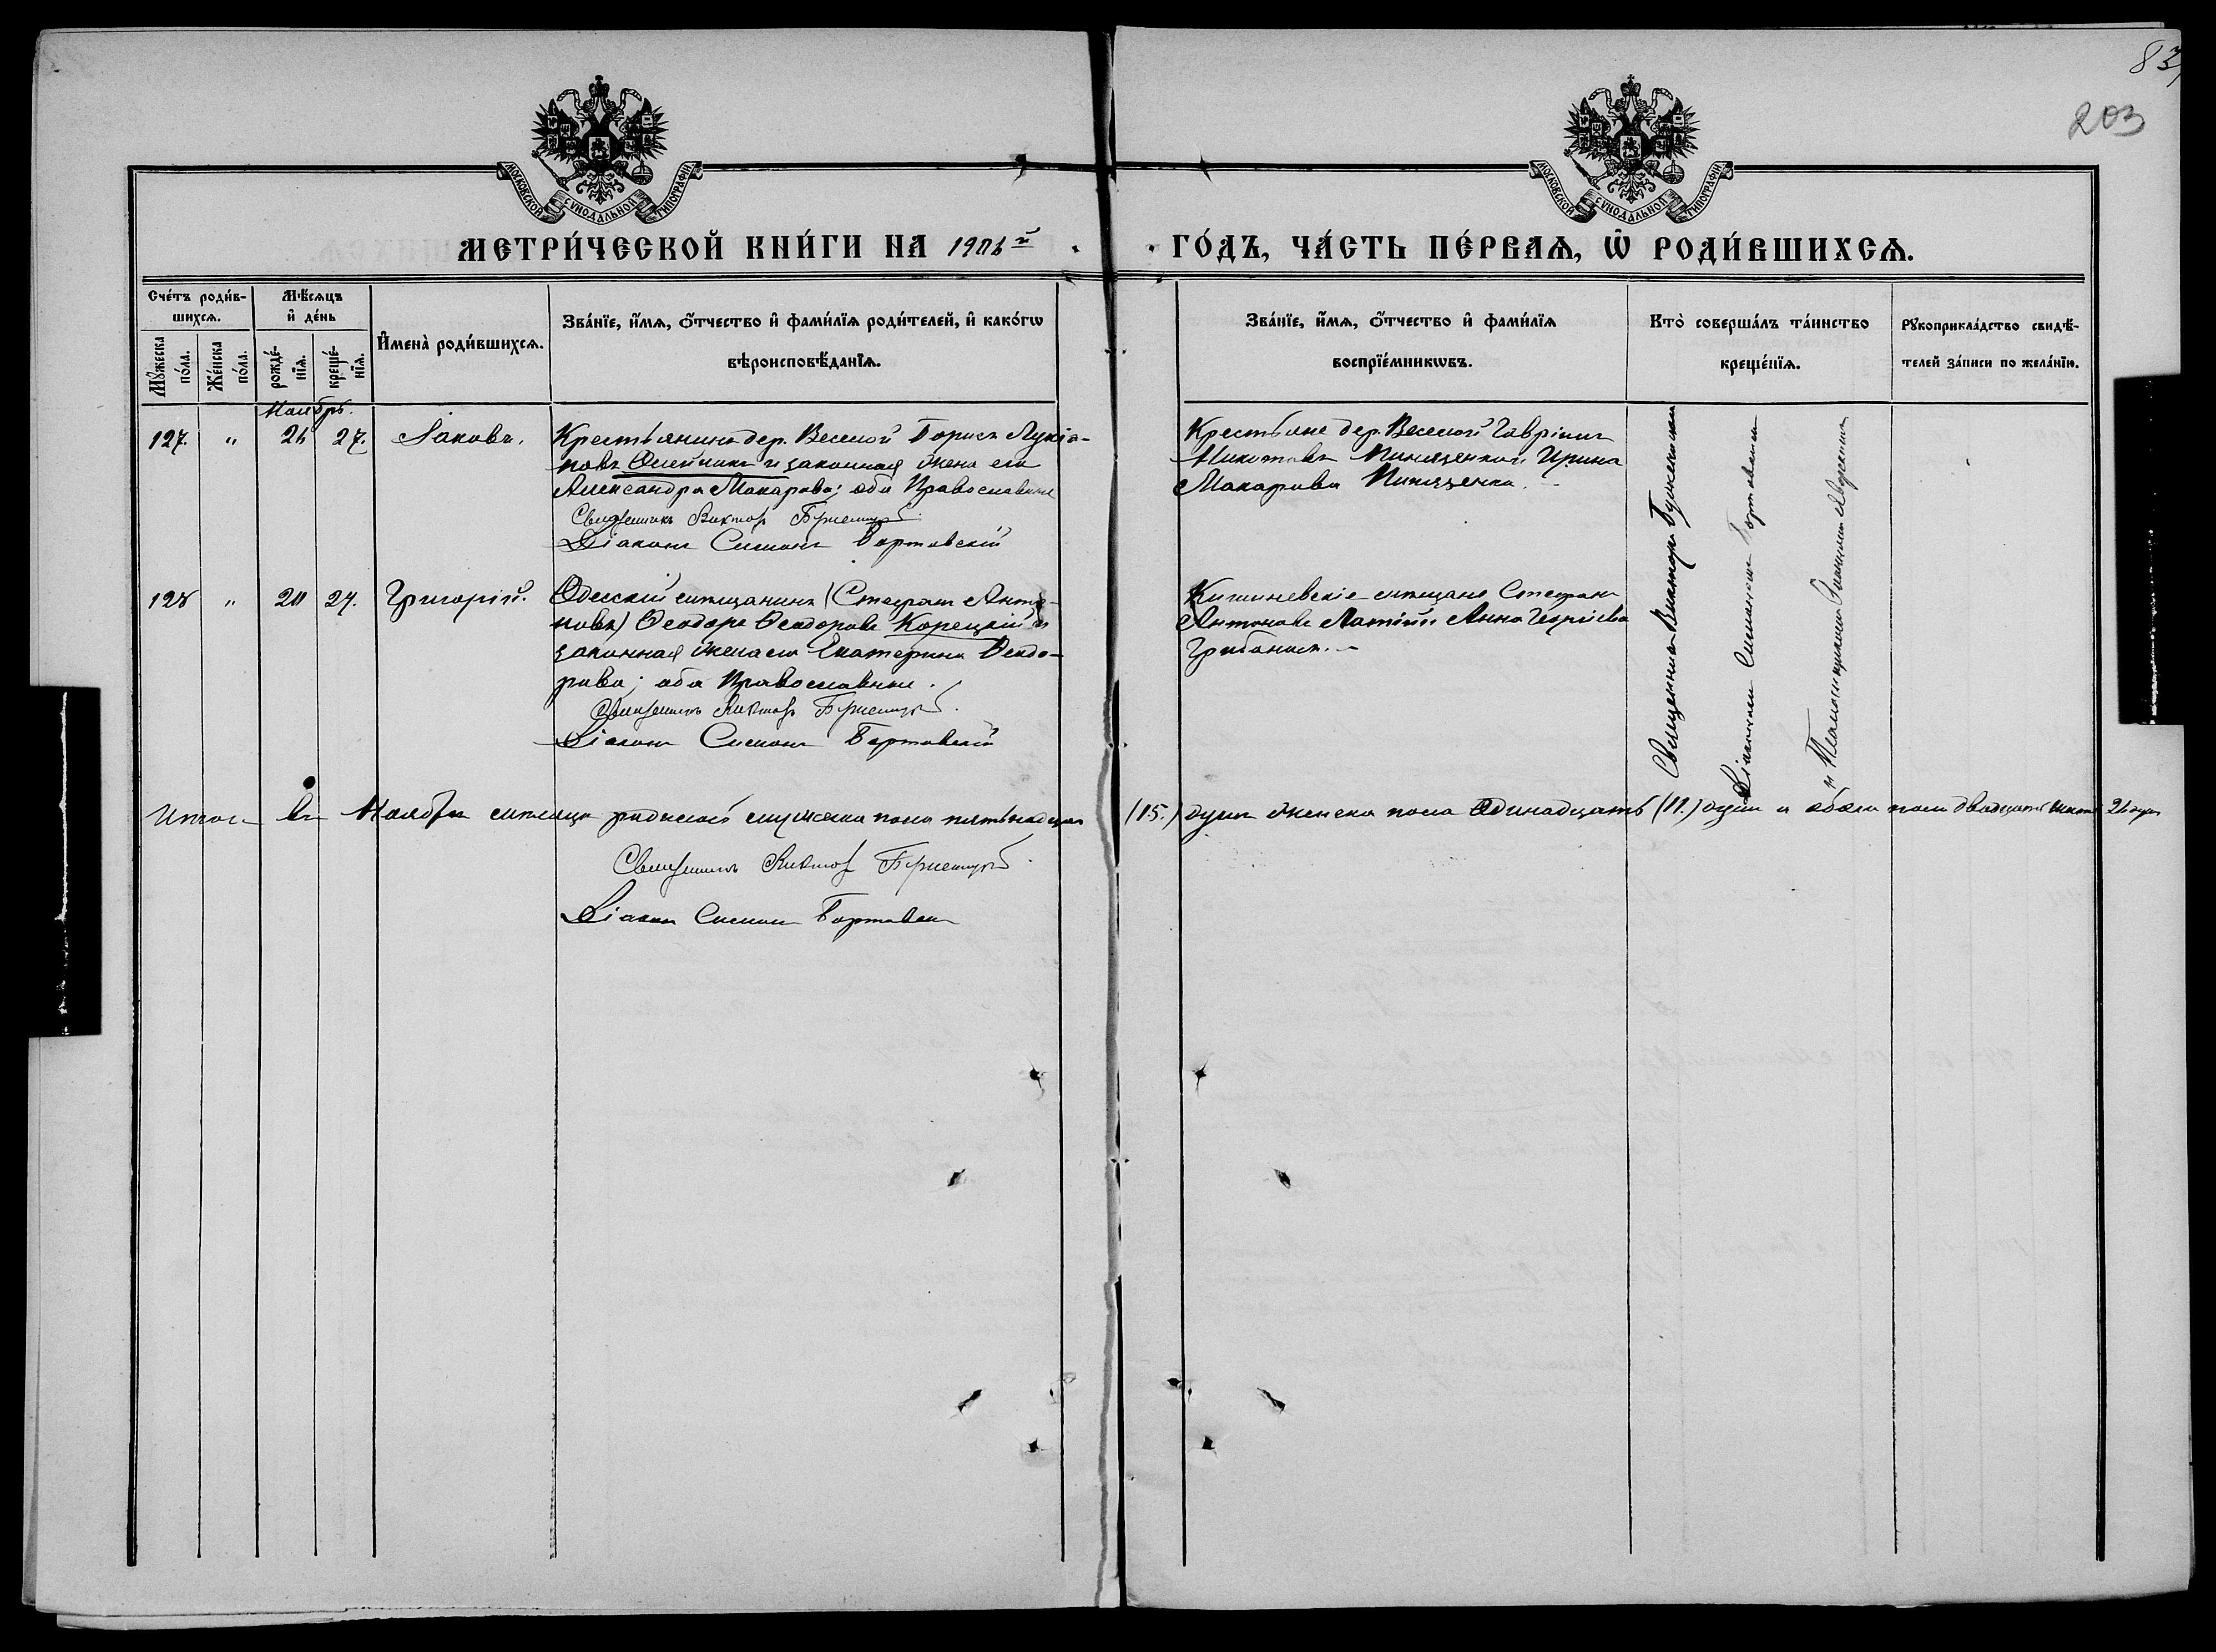 83
203
МОСКОВСКОЙ СѴНОДАЛЬНОЙ ТИПОГРАФІИ
МОСКОВСКОЙ СѴНОДАЛЬНОЙ ТИПОГРАФІИ
МЕТРИ́ЧЕСКОЙ КНИ́ГИ НА 1906й
ГО́ДЪ, ЧА́СТЬ ПЕ́РВАѦ, Ѡ҆ РОДИ́ВШИХСѦ.
Сче́тъ роди́в-
шихсѧ.
Мꙋ́жеска по́ла.
Же́нска по́ла.
Мѣ́сѧцъ
и҆ де́нь
рожде́-нїѧ.
креще́-нїѧ.
И҆мена̀ роди́вшихсѧ.
Зва́нїе, и҆́мѧ, ѻ҆́тчество и҆ фами́лїѧ роди́телей, и҆ како́гѡ
вѣроисповѣ́данїѧ.
Зва́нїе, и҆́мѧ, ѻ҆́тчество и҆ фами́лїѧ
воспрїе́мникѡвъ.
Кто̀ соверша́лъ та́инство
креще́нїѧ.
Рꙋкоприкла́дство свидѣ́-
телей за́писи по жела́нїю.
Ноябрь.
127. " 26 27. Іаковъ. Крестьянинъ дер. Веселой Борисъ Лукіа-
новъ Олейникъ и законная жена его
Александра Макарова; оба Православные
Священникъ Виктор
Діаконъ Симонъ Бортовскій
Крестьяне дер. Веселой Гавріилъ
и Ирина
Макарова
128 " 20 27. Григорій. Одесскій мѣщанинъ (Стефанъ Анто-
новъ) Ѳеодоръ Ѳеодоровъ Корецкій и
законная жена его Екатерина Ѳеодо-
рова; оба Православные.
Священникъ Виктор
Діаконъ Симонъ Бортовскій
Кишиневскіе мѣщане Стефанъ
Антоновъ и Анна Георгіева
Священникъ Викторъ
Діаконъ Симонъ Бортовскій
и Псаломщикъ
Итого въ Ноябрѣ мѣсяцѣ родилось мужеска пола пятнадцать (15.) душъ женска пола одинадцать (11.) душъ и обоего пола двадцать шесть 26 душ
Священникъ Виктор
Діаконъ Симонъ Бортовскій